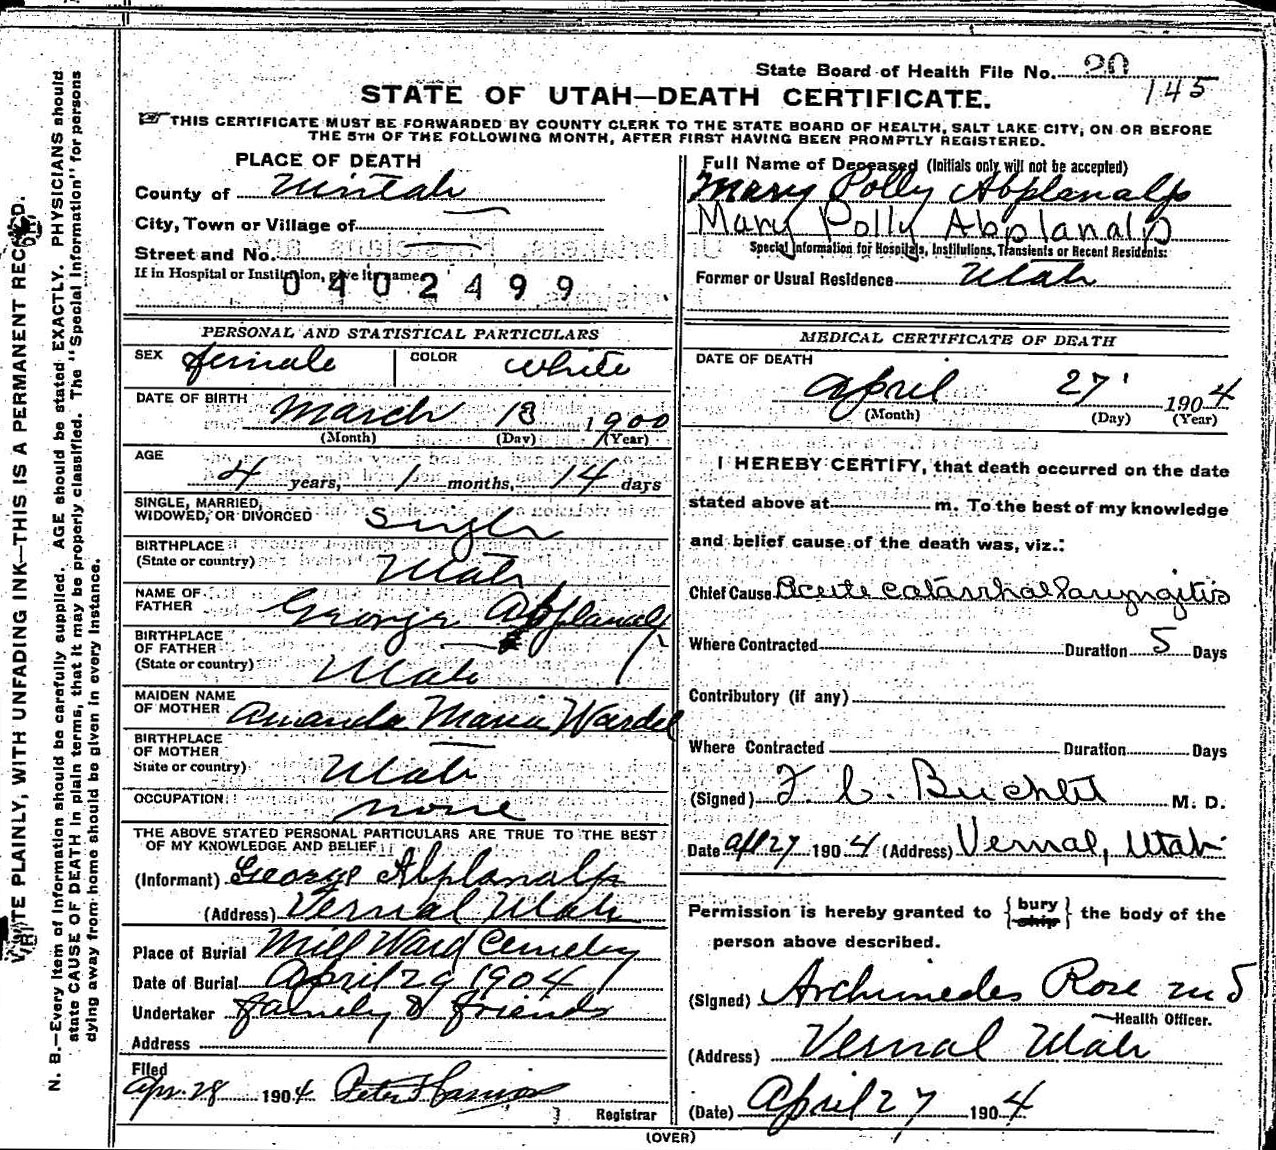 State Board of Health File No. 20
145
STATE OF UTAH—DEATH CERTIFICATE.
THIS CERTIFICATE MUST BE FORWARDED BY COUNTY CLERK TO THE STATE BOARD OF HEALTH, SALT LAKE CITY, ON OR BEFORE
THE 5TH OF THE FOLLOWING MONTH, AFTER FIRST HAVING BEEN PROMPTLY REGISTERED.
PLACE OF DEATH
County of Uintah
City, Town or Village of
Street and No.
If in Hospital or Institution, give its name
0402499
Full Name of Deceased (Initials only will not be accepted)
Mary Polly Abplanalp
Mary Polly Abplanalp
Special Information for Hospitals, Institutions, Transients or Recent Residents:
Former or Usual Residence Utah
PERSONAL AND STATISTICAL PARTICULARS
SEX female COLOR white
DATE OF BIRTH March 13 1900
(Month) (Day) (Year)
AGE
4 years, 1 months, 14 days
SINGLE, MARRIED,
WIDOWED, OR DIVORCED Single
BIRTHPLACE
(State or country) Utah
NAME OF
FATHER George Abplanalp
BIRTHPLACE
OF FATHER
(State or country) Utah
MAIDEN NAME
OF MOTHER Amanda Maria Wardel
BIRTHPLACE
OF MOTHER
State or country) Utah
OCCUPATION none
THE ABOVE STATED PERSONAL PARTICULARS ARE TRUE TO THE BEST
OF MY KNOWLEDGE AND BELIEF
(Informant) George Abplanalp
(Address) Vernal Utah
Place of Burial Mill Ward Cemetery
Date of Burial April 29 1904
Undertaker family & friends
Address
Filed
Apr. 28 1904 Peter
Registrar
MEDICAL CERTIFICATE OF DEATH
DATE OF DEATH
April 27 1904
(Month) (Day) (Year)
I HEREBY CERTIFY, that death occurred on the date
stated above at m. To the best of my knowledge
and belief cause of the death was, viz.:
Chief Cause Acute catarrhal laryngitis
Where Contracted Duration 5 Days
Contributory (if any)
Where Contracted Duration Days
(Signed) M. D.
Date Apl 27 1904 (Address) Vernal, Utah
Permission is hereby granted to { bury ship } the body of the
person above described.
(Signed) Archimedes Rose MD
Health Officer.
(Address) Vernal Utah
(Date) April 27 1904
(OVER)
WRITE PLAINLY, WITH UNFADING INK—THIS IS A PERMANENT RECORD.
N. B.—Every item of information should be carefully supplied. AGE should be stated EXACTLY. PHYSICIANS should
state CAUSE OF DEATH in plain terms, that it may be properly classified. The "Special Information" for persons
dying away from home should be given in every instance.